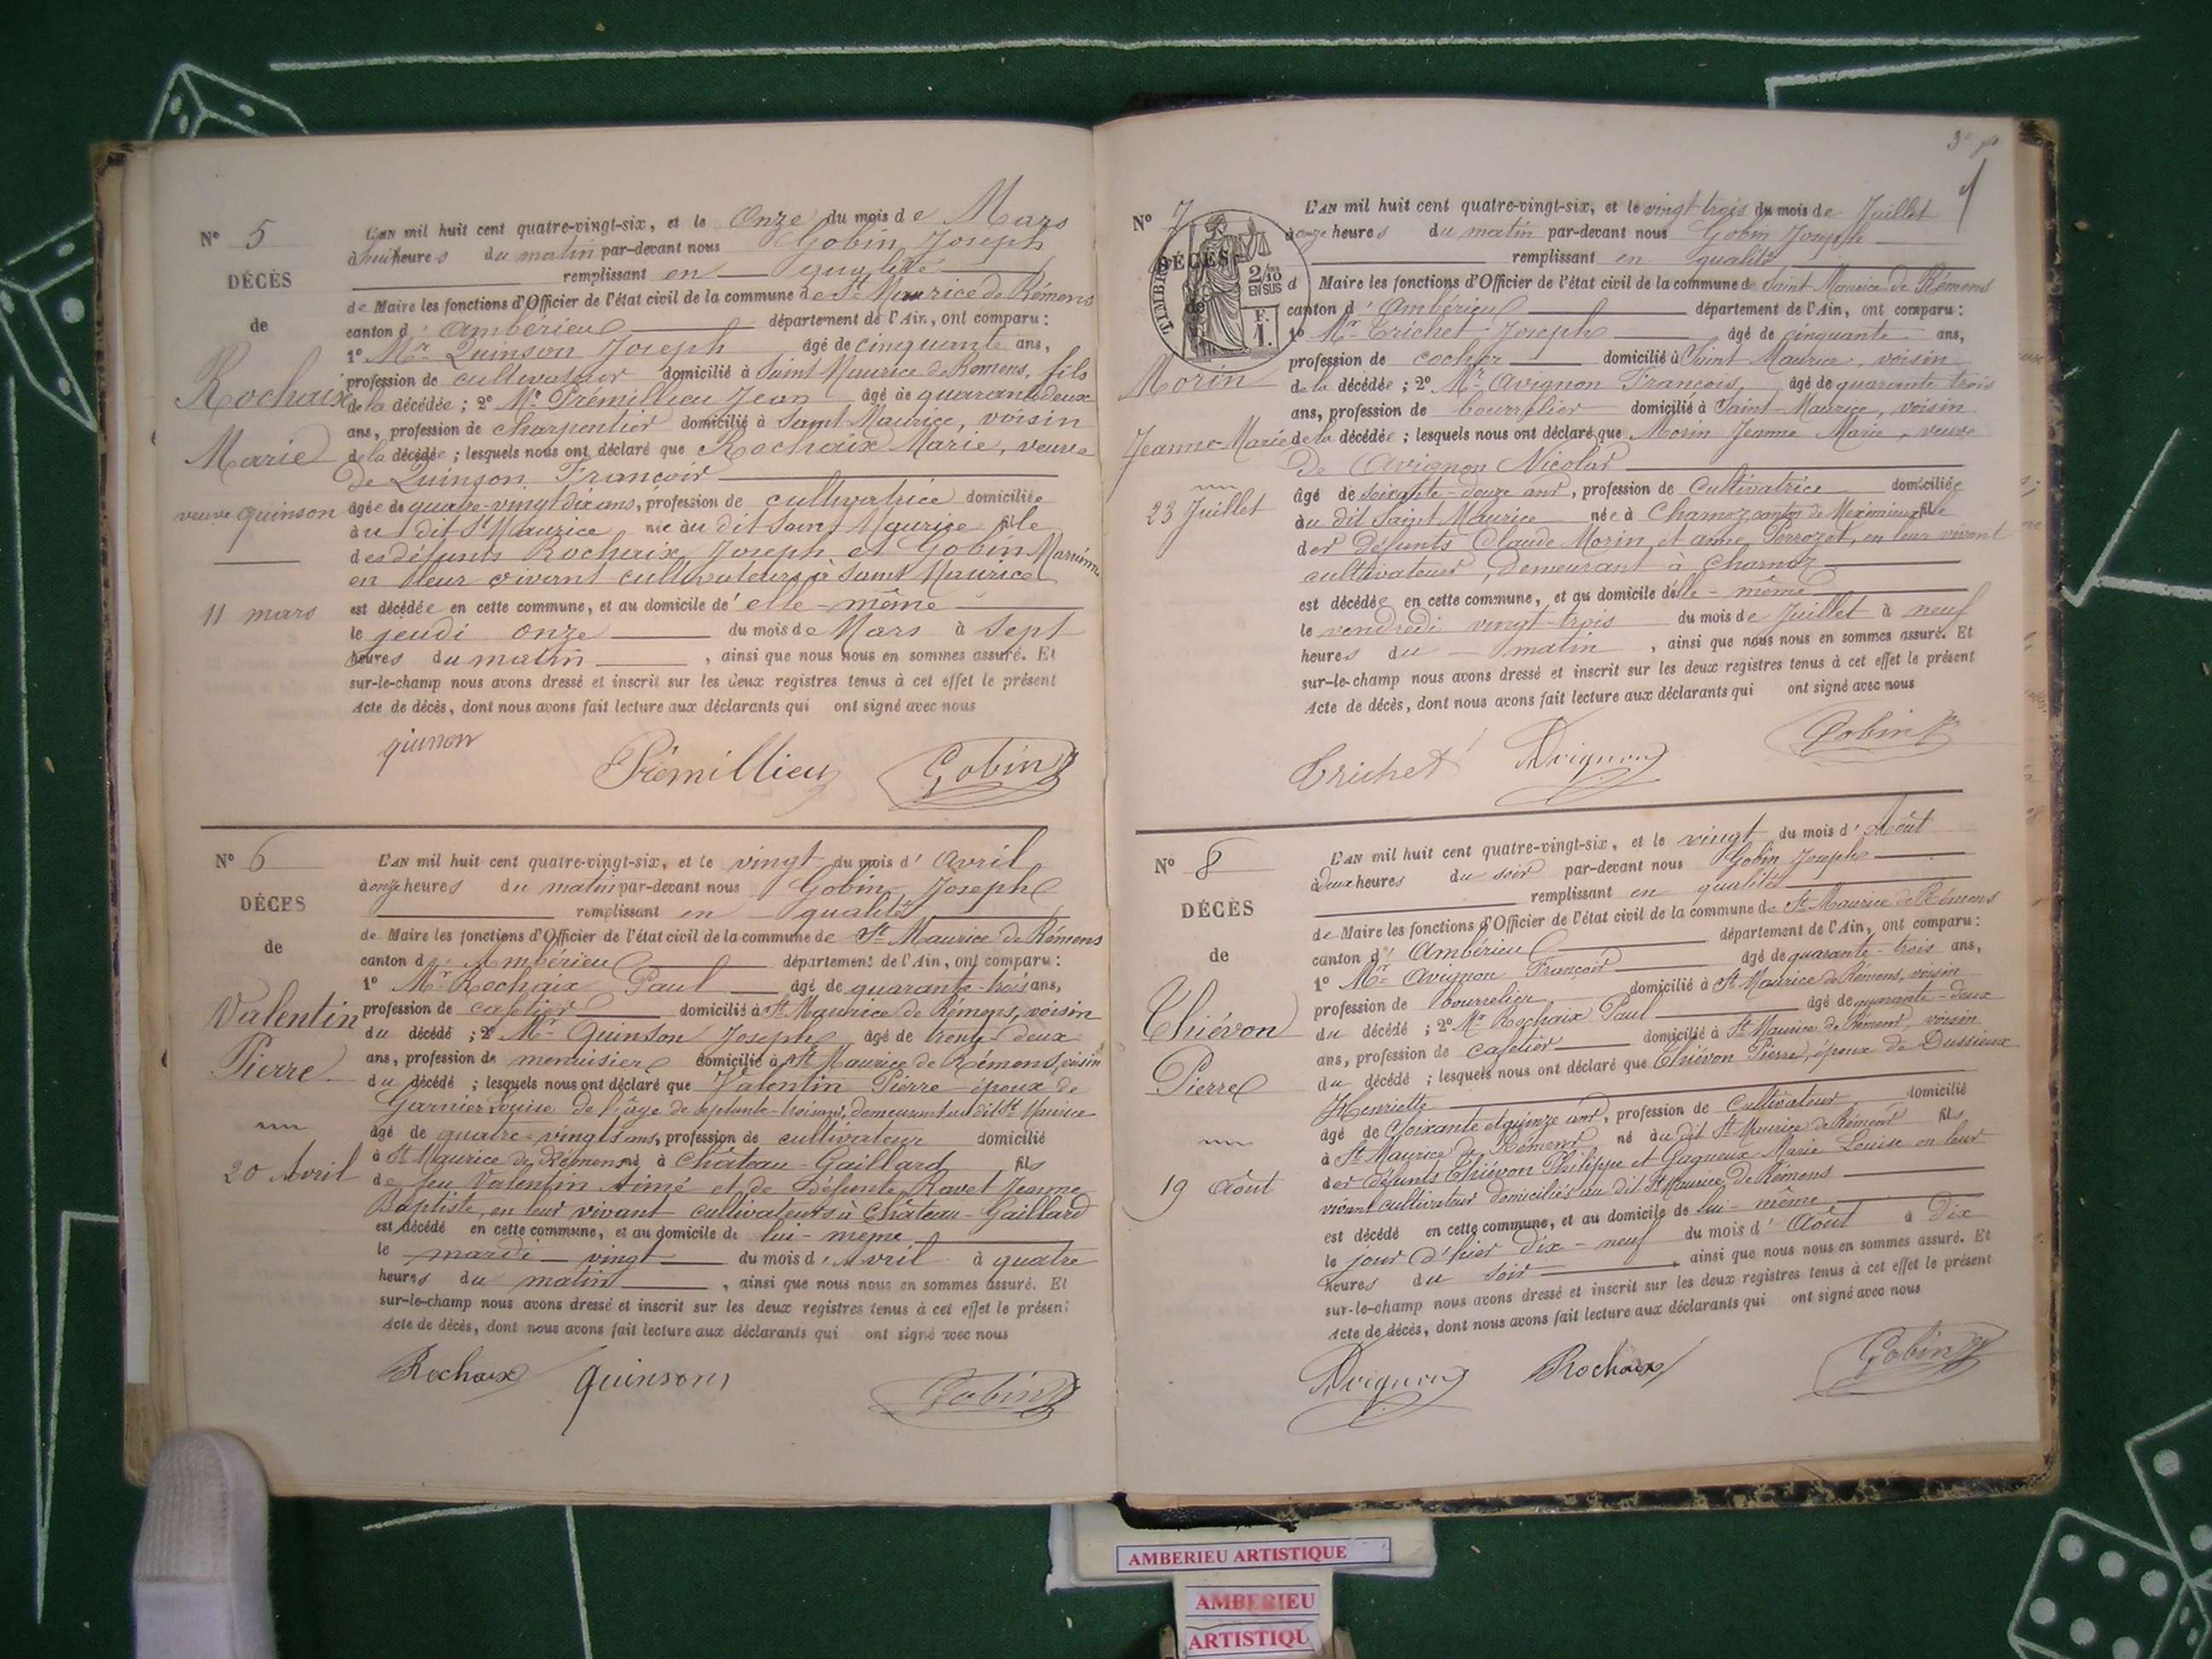 Nº 5
DÉCÈS
de
Rochaix
Marie
veuve quinson
11 mars
L'AN mil huit cent quatre-vingt-six, et le Onze du mois de Mars
à huit heures du matin par-devant nous Gobin Joseph
remplissant en qualité
de Maire les fonctions d'Officier de l'état civil de la commune de St Maurice de Rémens
canton d'Ambérieu département de l'Ain, ont comparu :
1º Mr Quinson Joseph âgé de cinquante ans,
profession de cultivateur domicilié à Saint Maurice de Remens, fils
de la décédée ; 2º Mr Prémillieu Jean âgé de quarante deux
ans, profession de charpentier domicilié à Saint Maurice, voisin
de la décédée ; lesquels nous ont déclaré que Rochaix Marie, veuve
de Quinson François
âgée de quatre-vingt dix ans, profession de cultivatrice domiciliée
au dit St Maurice née au dit Saint Maurice fille
des défunts Rochaix Joseph et Gobin
en leur vivant cultivateurs à Saint Maurice
est décédée en cette commune, et au domicile de' elle-même
le jeudi onze du mois de Mars à Sept
heures du matin, ainsi que nous nous en sommes assuré. Et
sur-le-champ nous avons dressé et inscrit sur les deux registres tenus à cet effet le présent
Acte de décès, dont nous avons fait lecture aux déclarants qui ont signé avec nous
quinson Prémillieu Gobin
Nº 6
DÉCÈS
de
Valentin
Pierre
20 Avril
L'AN mil huit cent quatre-vingt-six, et le vingt du mois d' Avril
à onze heures du matin par-devant nous Gobin Joseph
remplissant en qualité
de Maire les fonctions d'Officier de l'état civil de la commune de St Maurice de Rémens
canton d'Ambérieu département de l'Ain, ont comparu :
1º Mr Rochaix Paul âgé de quarante-trois ans,
profession de cafetier domicilié à St Maurice de Rémens, voisin
du décédé ; 2º Mr Quinson Joseph âgé de trente deux
ans, profession de menuisier domicilié à St Maurice de Rémens, voisin
du décédé ; lesquels nous ont déclaré que Valentin Pierre époux de
Garnier Louise de l'âge de septante-trois ans, demeurant au dit St Maurice
âgé de quatre-vingts ans, profession de cultivateur domicilié
à St Maurice de Rémens né à Château-Gaillard fils
de feu Valentin Aimé et de Défunte Ravet Jeanne
Baptiste, en leur vivant cultivateurs à Château-Gaillard
est décédé en cette commune, et au domicile de lui-même
le mardi vingt du mois d'Avril à quatre
heures du matin, ainsi que nous nous en sommes assuré. Et
sur-le-champ nous avons dressé et inscrit sur les deux registres tenus à cet effet le présent
Acte de décès, dont nous avons fait lecture aux déclarants qui ont signé avec nous
Rochaix quinson Gobin
3e
Nº 7
TIMBRE
2/10 EN SUS
F. 1.
DÉCÈS
de
Morin
Jeanne-Marie
23 Juillet
L'AN mil huit cent quatre-vingt-six, et le vingt trois du mois de Juillet
à onze heures du matin par-devant nous Gobin Joseph
remplissant en qualité
d Maire les fonctions d'Officier de l'état civil de la commune de Saint Maurice de Rémens
canton d'Ambérieu département de l'Ain, ont comparu :
1º Mr Trichet Joseph âgé de cinquante ans,
profession de cocher domicilié à Saint Maurice, voisin
de la décédée ; 2º Mr Avignon François, âgé de quarante trois
ans, profession de bourrelier domicilié à Saint-Maurice, voisin
de la décédée ; lesquels nous ont déclaré que Morin Jeanne Marie, veuve
De Avignon Nicolas
âgé de soixante-douze ans, profession de Cultivatrice domiciliée
au dit Saint Maurice née à Charnoz, canton de Meximieux fille
des défunts Claude Morin, et anne Perrozet, en leur vivant
cultivateurs, demeurant à Charnoz
est décédée en cette commune, et au domicile d'elle-même
le vendredi vingt-trois du mois de Juillet à neuf
heures du matin, ainsi que nous nous en sommes assuré. Et
sur-le-champ nous avons dressé et inscrit sur les deux registres tenus à cet effet le présent
Acte de décès, dont nous avons fait lecture aux déclarants qui ont signé avec nous
Trichet Avignon Gobin
Nº 8
DÉCÈS
de
Thiévon
Pierre
19 Août
L'AN mil huit cent quatre-vingt-six, et le vingt du mois d'Août
à deux heures du soir par-devant nous Gobin Joseph
remplissant en qualité
de Maire les fonctions d'Officier de l'état civil de la commune de St Maurice de Rémens
canton d'Ambérieu département de l'Ain, ont comparu :
1º Mr Avignon François âgé de quarante-trois ans,
profession de bourrelier domicilié à St Maurice de Rémens, voisin
du décédé ; 2º Mr Rochaix Paul âgé de quarante-deux
ans, profession de cafetier domicilié à St Maurice de Rémens, voisin
du décédé ; lesquels nous ont déclaré que Thiévon Pierre, époux de Dussieux
Henriette
âgé de Soixante et quinze ans, profession de Cultivateur domicilié
à St Maurice de Rémens né au dit St Maurice de Rémens fils
des défunts Thiévon Philippe et Gagneux Marie Louise en leur
vivant cultivateurs domiciliés au dit St Maurice de Rémens
est décédé en cette commune, et au domicile de lui-même
le jour d'hier dix-neuf du mois d'Août à Dix
heures du soir, ainsi que nous nous en sommes assuré. Et
sur-le-champ nous avons dressé et inscrit sur les deux registres tenus à cet effet le présent
Acte de décès, dont nous avons fait lecture aux déclarants qui ont signé avec nous
Avignon Rochaix Gobin
AMBERIEU ARTISTIQUE
AMBERIEU
ARTISTIQU